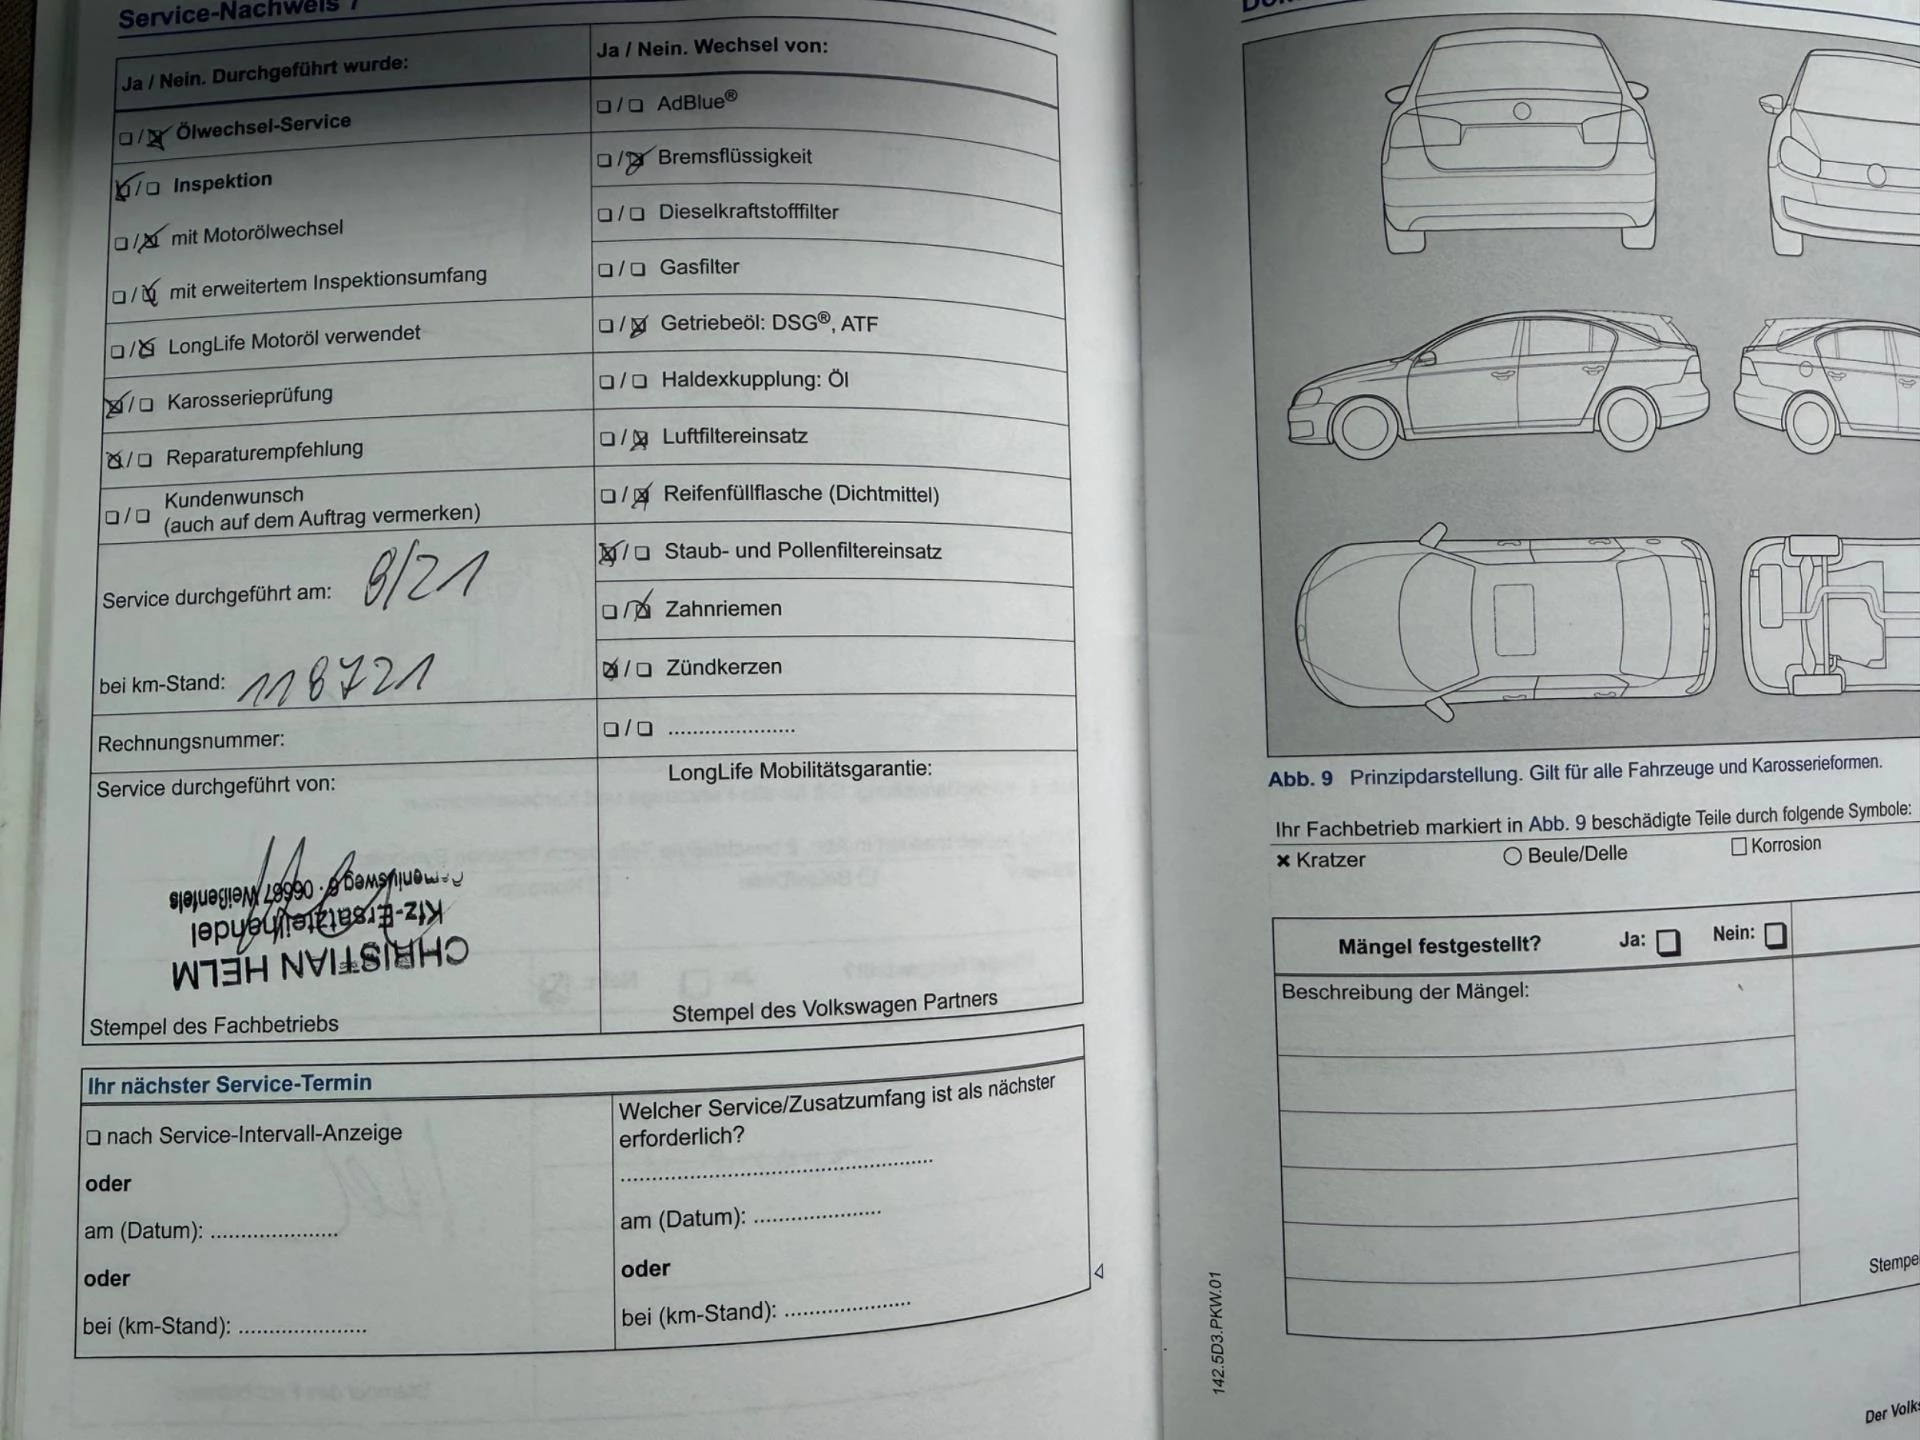 Service-Nachweis 7
Ja / Nein. Durchgeführt wurde:
❏ / ❏ Ölwechsel-Service
❏ / ❏ Inspektion
❏ / ❏ mit Motorölwechsel
❏ / ❏ mit erweitertem Inspektionsumfang
❏ / ❏ LongLife Motoröl verwendet
❏ / ❏ Karosserieprüfung
❏ / ❏ Reparaturempfehlung
❏ / ❏ Kundenwunsch
(auch auf dem Auftrag vermerken)
Service durchgeführt am: 8/21
bei km-Stand: 118721
Rechnungsnummer:
Service durchgeführt von:
CHRISTIAN HELM
Kfz-Ersatzteilhandel
06667 Weißenfels
Stempel des Fachbetriebs
Ja / Nein. Wechsel von:
❏ / ❏ AdBlue®
❏ / ❏ Bremsflüssigkeit
❏ / ❏ Dieselkraftstofffilter
❏ / ❏ Gasfilter
❏ / ❏ Getriebeöl: DSG®, ATF
❏ / ❏ Haldexkupplung: Öl
❏ / ❏ Luftfiltereinsatz
❏ / ❏ Reifenfüllflasche (Dichtmittel)
❏ / ❏ Staub- und Pollenfiltereinsatz
❏ / ❏ Zahnriemen
❏ / ❏ Zündkerzen
❏ / ❏ .....................
LongLife Mobilitätsgarantie:
Stempel des Volkswagen Partners
Ihr nächster Service-Termin
❏ nach Service-Intervall-Anzeige
oder
am (Datum): .....................
oder
bei (km-Stand): .....................
Welcher Service/Zusatzumfang ist als nächster
erforderlich?
..................................................
am (Datum): .....................
oder
bei (km-Stand): .....................
Abb. 9 Prinzipdarstellung. Gilt für alle Fahrzeuge und Karosserieformen.
Ihr Fachbetrieb markiert in Abb. 9 beschädigte Teile durch folgende Symbole:
✖ Kratzer ○ Beule/Delle □ Korrosion
Mängel festgestellt? Ja: ❏ Nein: ❏
Beschreibung der Mängel:
142.5D3.PKW.01